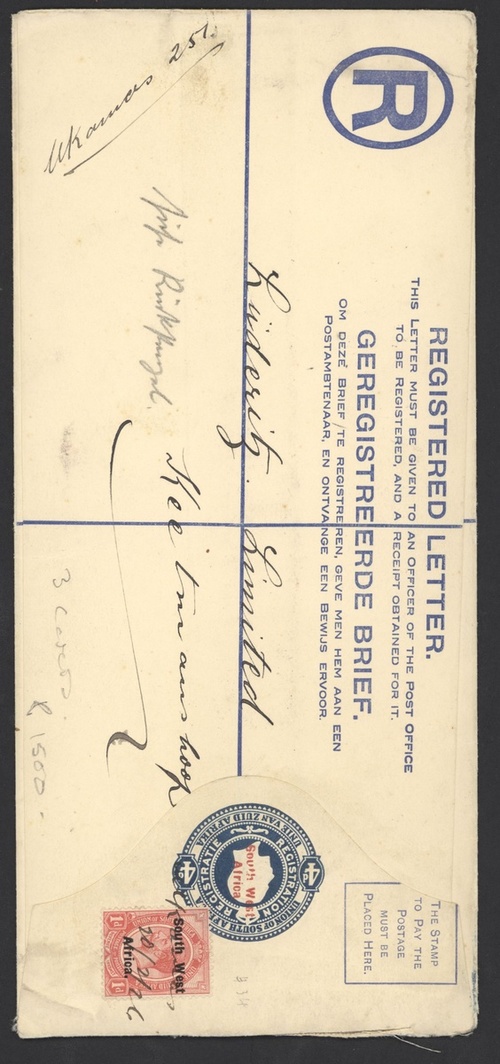 R
REGISTERED LETTER.
THIS LETTER MUST BE GIVEN TO AN OFFICER OF THE POST OFFICE
TO BE REGISTERED, AND A RECEIPT OBTAINED FOR IT.
GEREGISTREERDE BRIEF.
OM DEZE BRIEF TE REGISTREREN, GEVE MEN HEM AAN EEN
POSTAMBTENAAR, EN ONTVANGE EEN BEWIJS ERVOOR.
THE STAMP
TO PAY THE
POSTAGE
MUST BE
PLACED HERE.
Ukamas 251.
Lüderitz Limited
Keetmanshoop
siehe Rückspiegel.
UNION OF SOUTH AFRICA
REGISTRATION
REGISTRATIE
UNIE VAN ZUID AFRIKA
4D
4D
South West
Africa
South West
Africa.
1d
1d
20/2/26
3 covers
R 1500.-